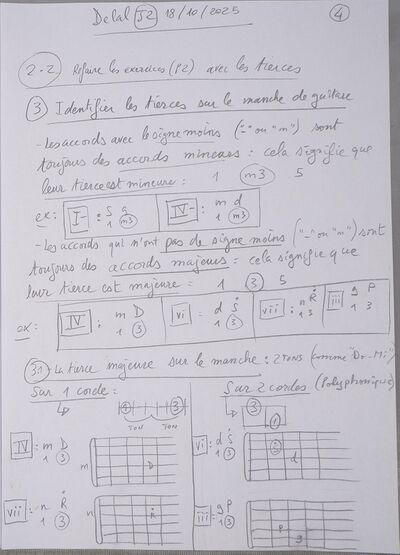 Delal J2 18/10/2025 4
2.2 Refaire les exercices (P2) avec les tierces
3 Identifier les tierces sur le manche de guitare
- Les accords avec le signe moins ("-" ou "m") sont
toujours des accords mineurs : cela signifie que
leur tierce est mineure : 1 m3 5
ex: I- : S g IV- : m d
1 m3 1 m3
- Les accords qui n'ont pas de signe moins ("-" ou "m") sont
toujours des accords majeurs : cela signifie que
leur tierce est majeure : 1 3 5
ex: IV : m D vi : d Ṡ vii : n Ṙ iii g P
1 3 1 3 1 3 1 3
3.1 La tierce majeure sur le manche : 2 TONS (comme "Do-Mi")
Sur 1 corde : Sur 2 cordes (Polyphonique)
1 3 3
TON TON 1
IV : m D vi : d Ṡ
1 3 1 3
m D Ṡ d
vii : n Ṙ iii : g P
1 3 1 3
n Ṙ P g